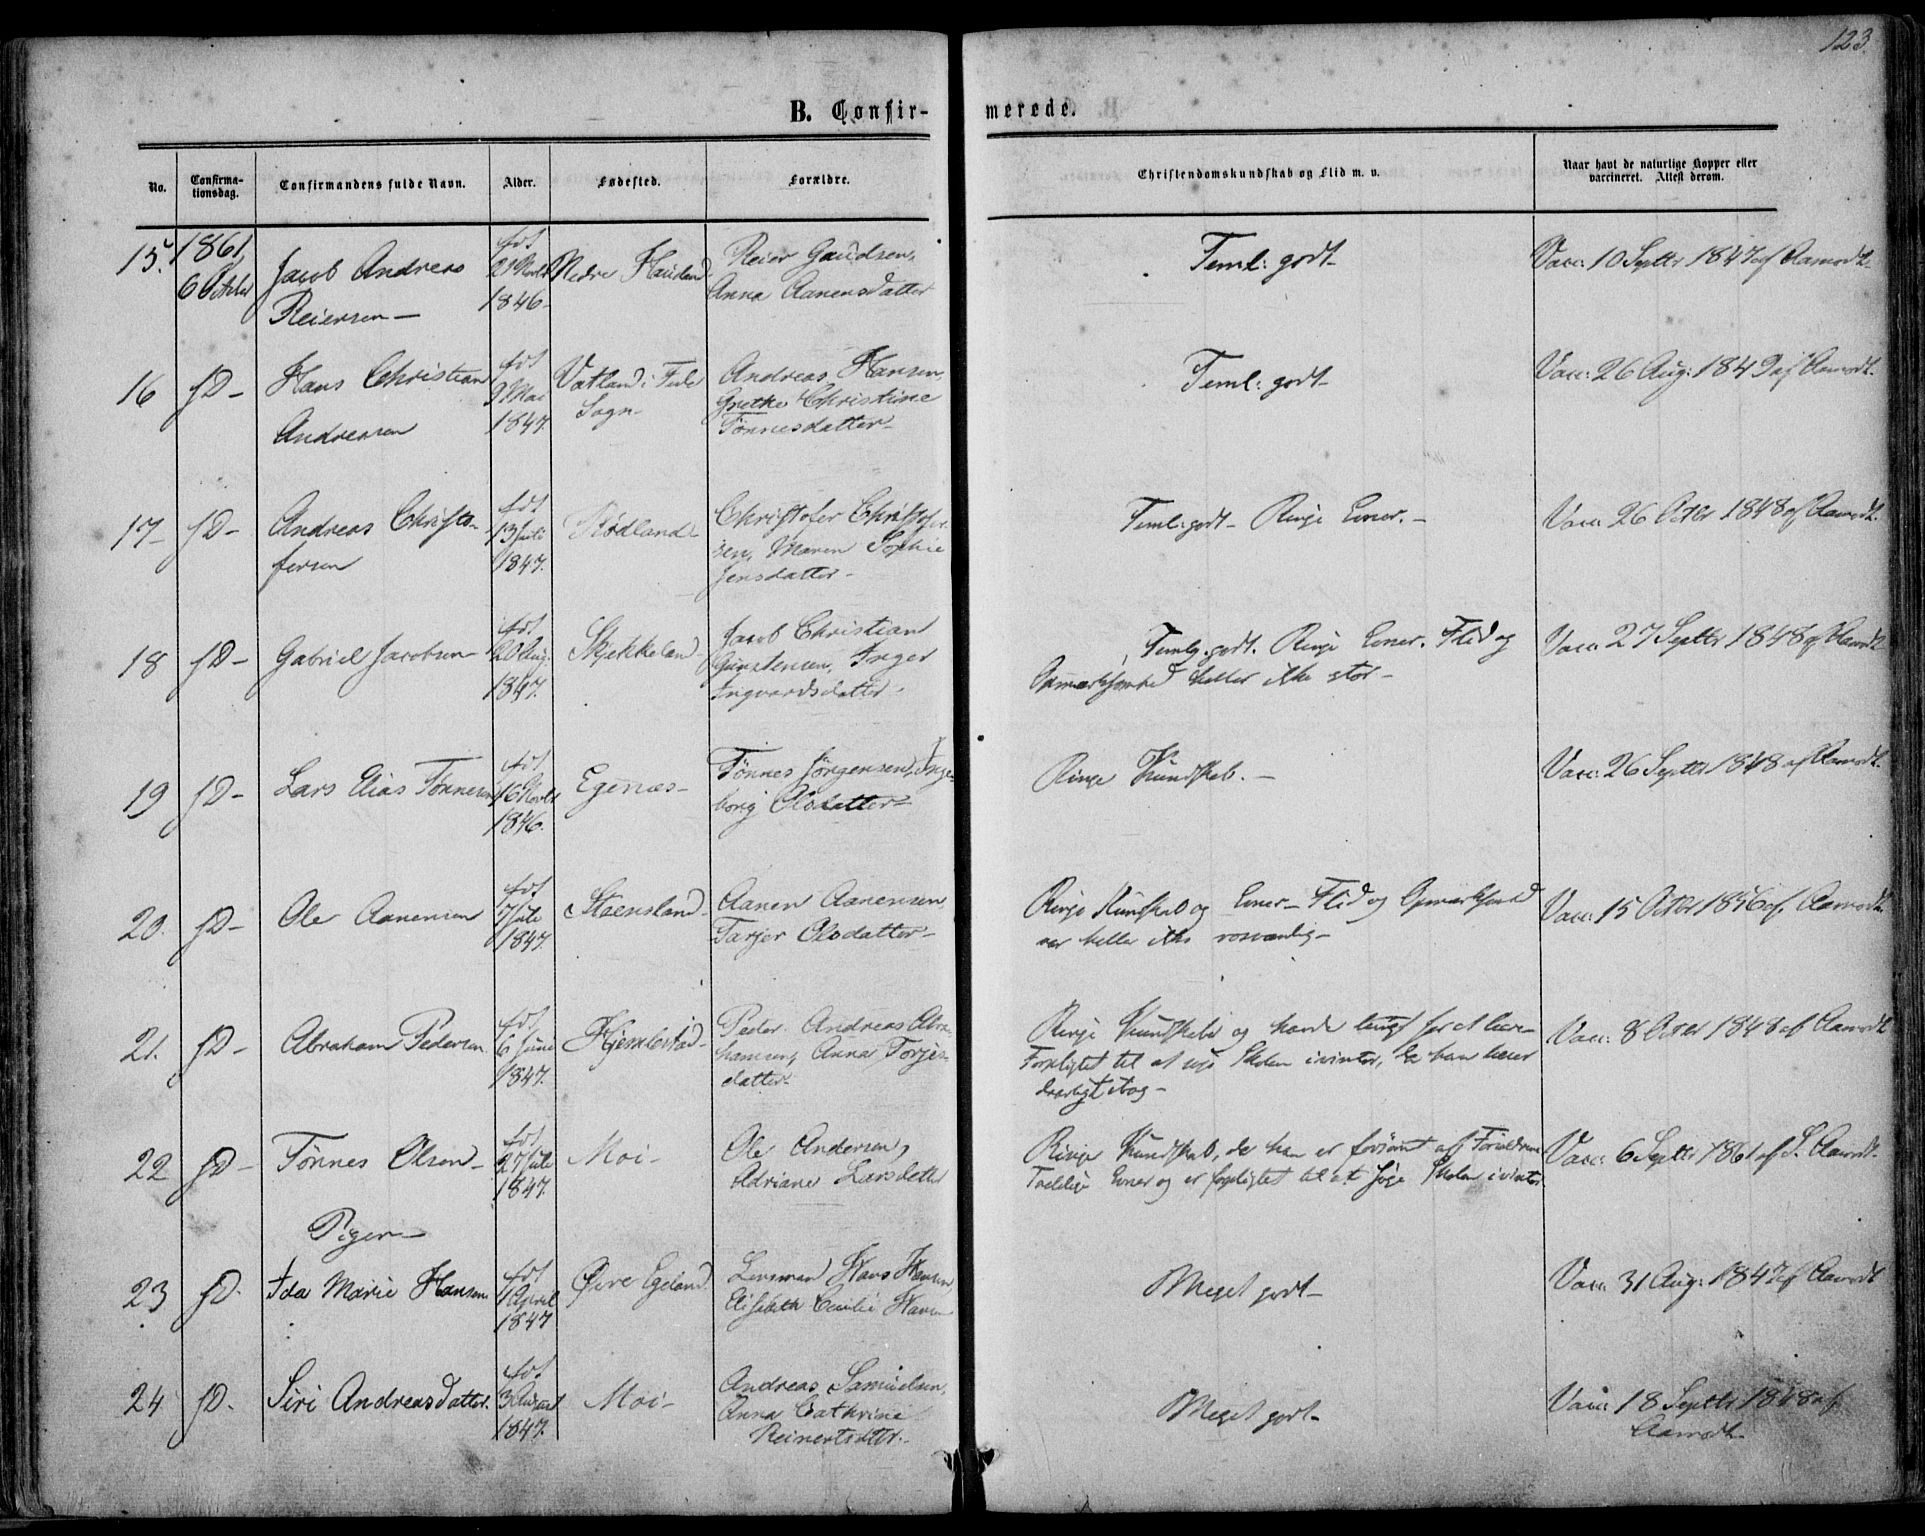 123.
B. Confirmerede.
No. Confirmationsdag. Confirmandens fulde Navn. Alder. Fødested. Forældre. Christendomskundskab og Flid m. v. Naar havt de naturlige Kopper eller vaccineret. Attest derom.
15. 1861 6 Octbr Jacob Andreas Reiersen— fdt 1846- Nedre
Anna Aanensdatter Teml: godt- Vacc: 10 Septbr 1847 af Aamodt-
16 fD- Hans Christian Andreasen fdt 9 Mai 1847. Vatland i
Sogn- Andreas Hansen, Grethe Christine Tønnesdatter- Teml: godt- Vacc: 26 Aug: 1849 af Aamodt.
17- fD- Andreas Christofersen fdt 13 Juli 1847. Rødland- Christofer Christofersen, Maren Sophie Jensdatter- Teml: godt- Ringe Evner.- Vacc 26 Octbr 1848 af Aamodt.
18 fD- Gabriel Jacobsen- fdt 20 Aug. 1847. Skjekkeland Jacob Christian
Inger Ingvardsdatter- Temlg. godt. Ringe Evner. Flid og
Opmærksomhed heller ikke stor- Vacc: 27 Septbr 1848 af Aamodt
19 fD- Lars Elias Tønnesen fdt 16 Novbr 1846. Egenæs- Tønnes Jørgensen, Ingeborg Olsdatter- Ringe Kundskab.- Vacc: 26 Septbr 1848 af Aamodt.
20. fD- Ole Aanensen fdt 7 Juli 1847. Stoensland- Aanen Aanensen, Tarjer Olsdatter- Ringe Kundskab og Evner- Flid og Opmærksomhed
var heller ikke Vacc: 15 Octbr 1856 af Aamodt.
21. fD- Abraham Pedersen fdt 6 Juni 1847. Hjemlestad- Peder Andreas Abrahamsen, Anna Torjesdatter- Ringe Kundskab og havde
Forpligtet til at søge Skolen ivinter, da han læser
daarligt ibog- Vacc: 8 Octbr 1848 af Aamodt
22 fD- Tønnes Olsen- fdt 27 Juli 1847. Moi- Ole Andersen, Adriane Larsdatter Ringe Kundskab, da han er forsømt af Forældrene
Taalelige Evner og er forpligtet til at søge Skolen ivinter. Vacc: 6 Septbr 1861 af S. Aamodt.
Piger-
23 fD. Ida Marie Hansen fdt April 1847 Øvre Egeland. Lensmand Hans Hansen, Elisabeth Cecilie Meget godt- Vacc: 31 Aug: 1847 af Aamodt
24 fD. Siri Andreasdatter. fdt. 3 1847. Moi- Andreas Samuelsen, Anna Cathrine Reinertsdtter.- Meget godt- Vacc: 18 Septbr 1848 af Aamodt-